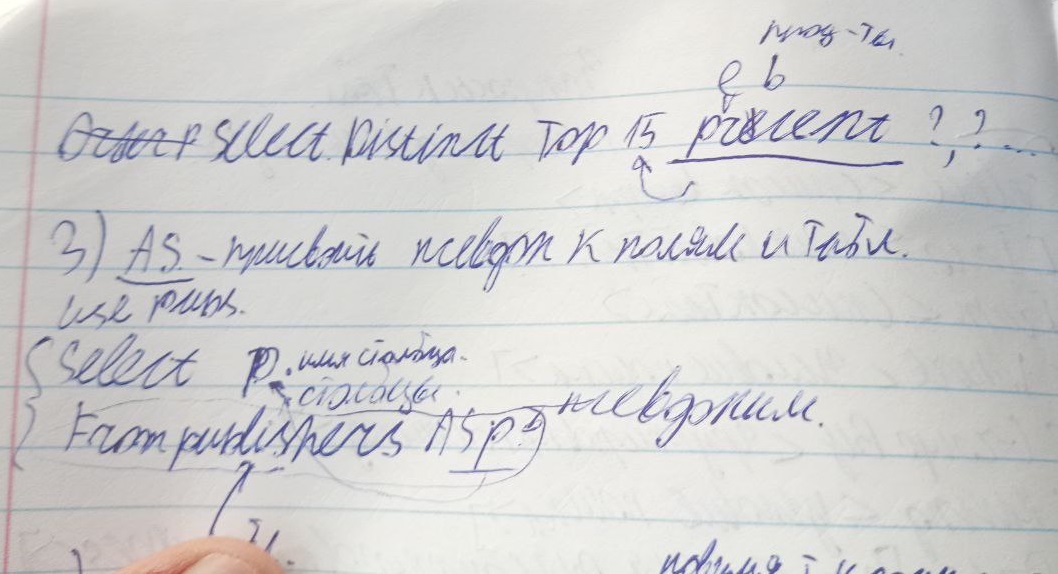 прод-ты.
Select Distinct Top 15 present ?, ? ...
3) AS - присвоить псевдон к полям и табл.
use pubs.
Select p. имя столбца.
столбцы.
From publishers AS p псевдоним.